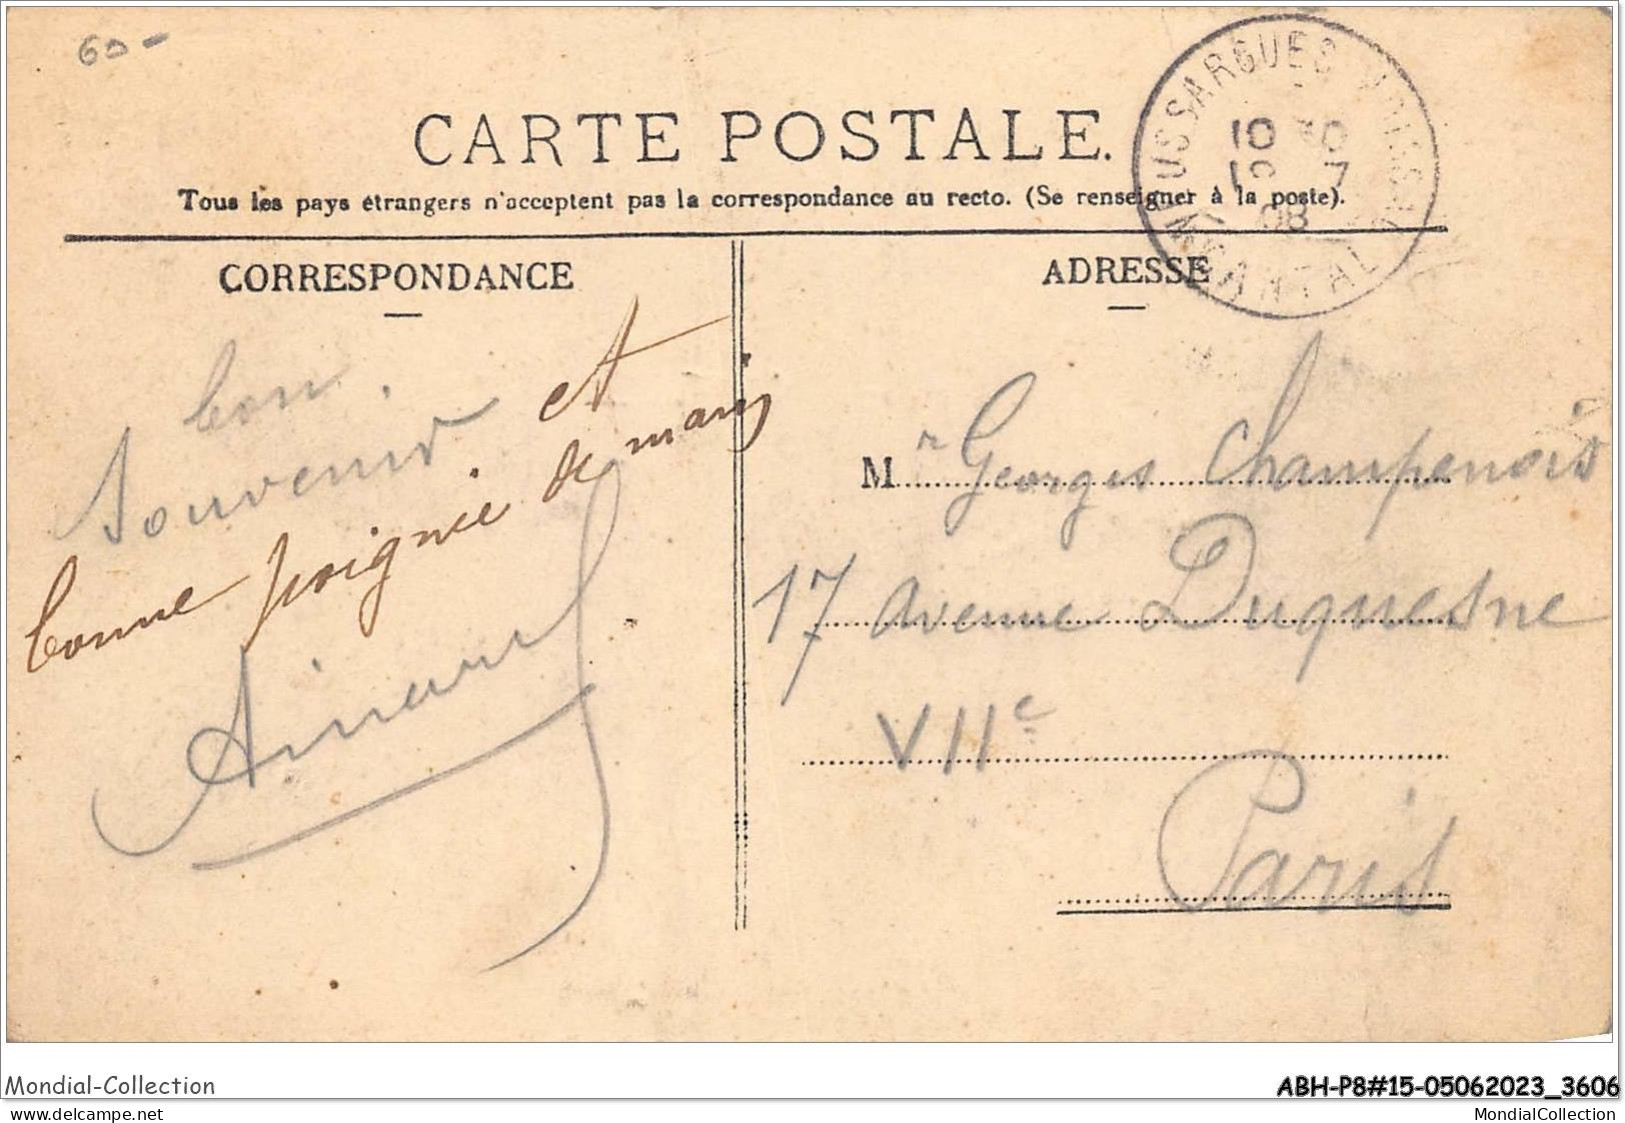 60-
CARTE POSTALE.
Tous les pays étrangers n'acceptent pas la correspondance au recto. (Se renseigner à la poste).
USSARGUES
10 30
7
08
CANTAL
CORRESPONDANCE
ADRESSE
bon
souvenir et
bonne poignée de main
M r Georges Champenois
17 avenue Duquesne
VIIe
Paris
Mondial-Collection
ABH-P8#15-05062023_3606
www.delcampe.net
MondialCollection